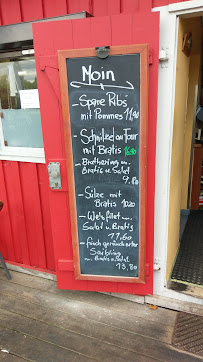 Moin
- Spare Ribs
mit Pommes 11,90
- Schnitzel on Tour
mit Bratis
- Brathering m.
Bratis u. Salat
9.80
- Sülze mit
Bratis 10.20
- Welsfilet m.
Salat u. Bratis
17,60
- frisch geräucherter
Saibling
m. Bratis u. Salat
13,80